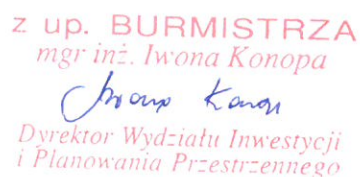 z up. BURMISTRZA
mgr inż. Iwona Konopa
Iwona Konopa
Dyrektor Wydziału Inwestycji
i Planowania Przestrzennego